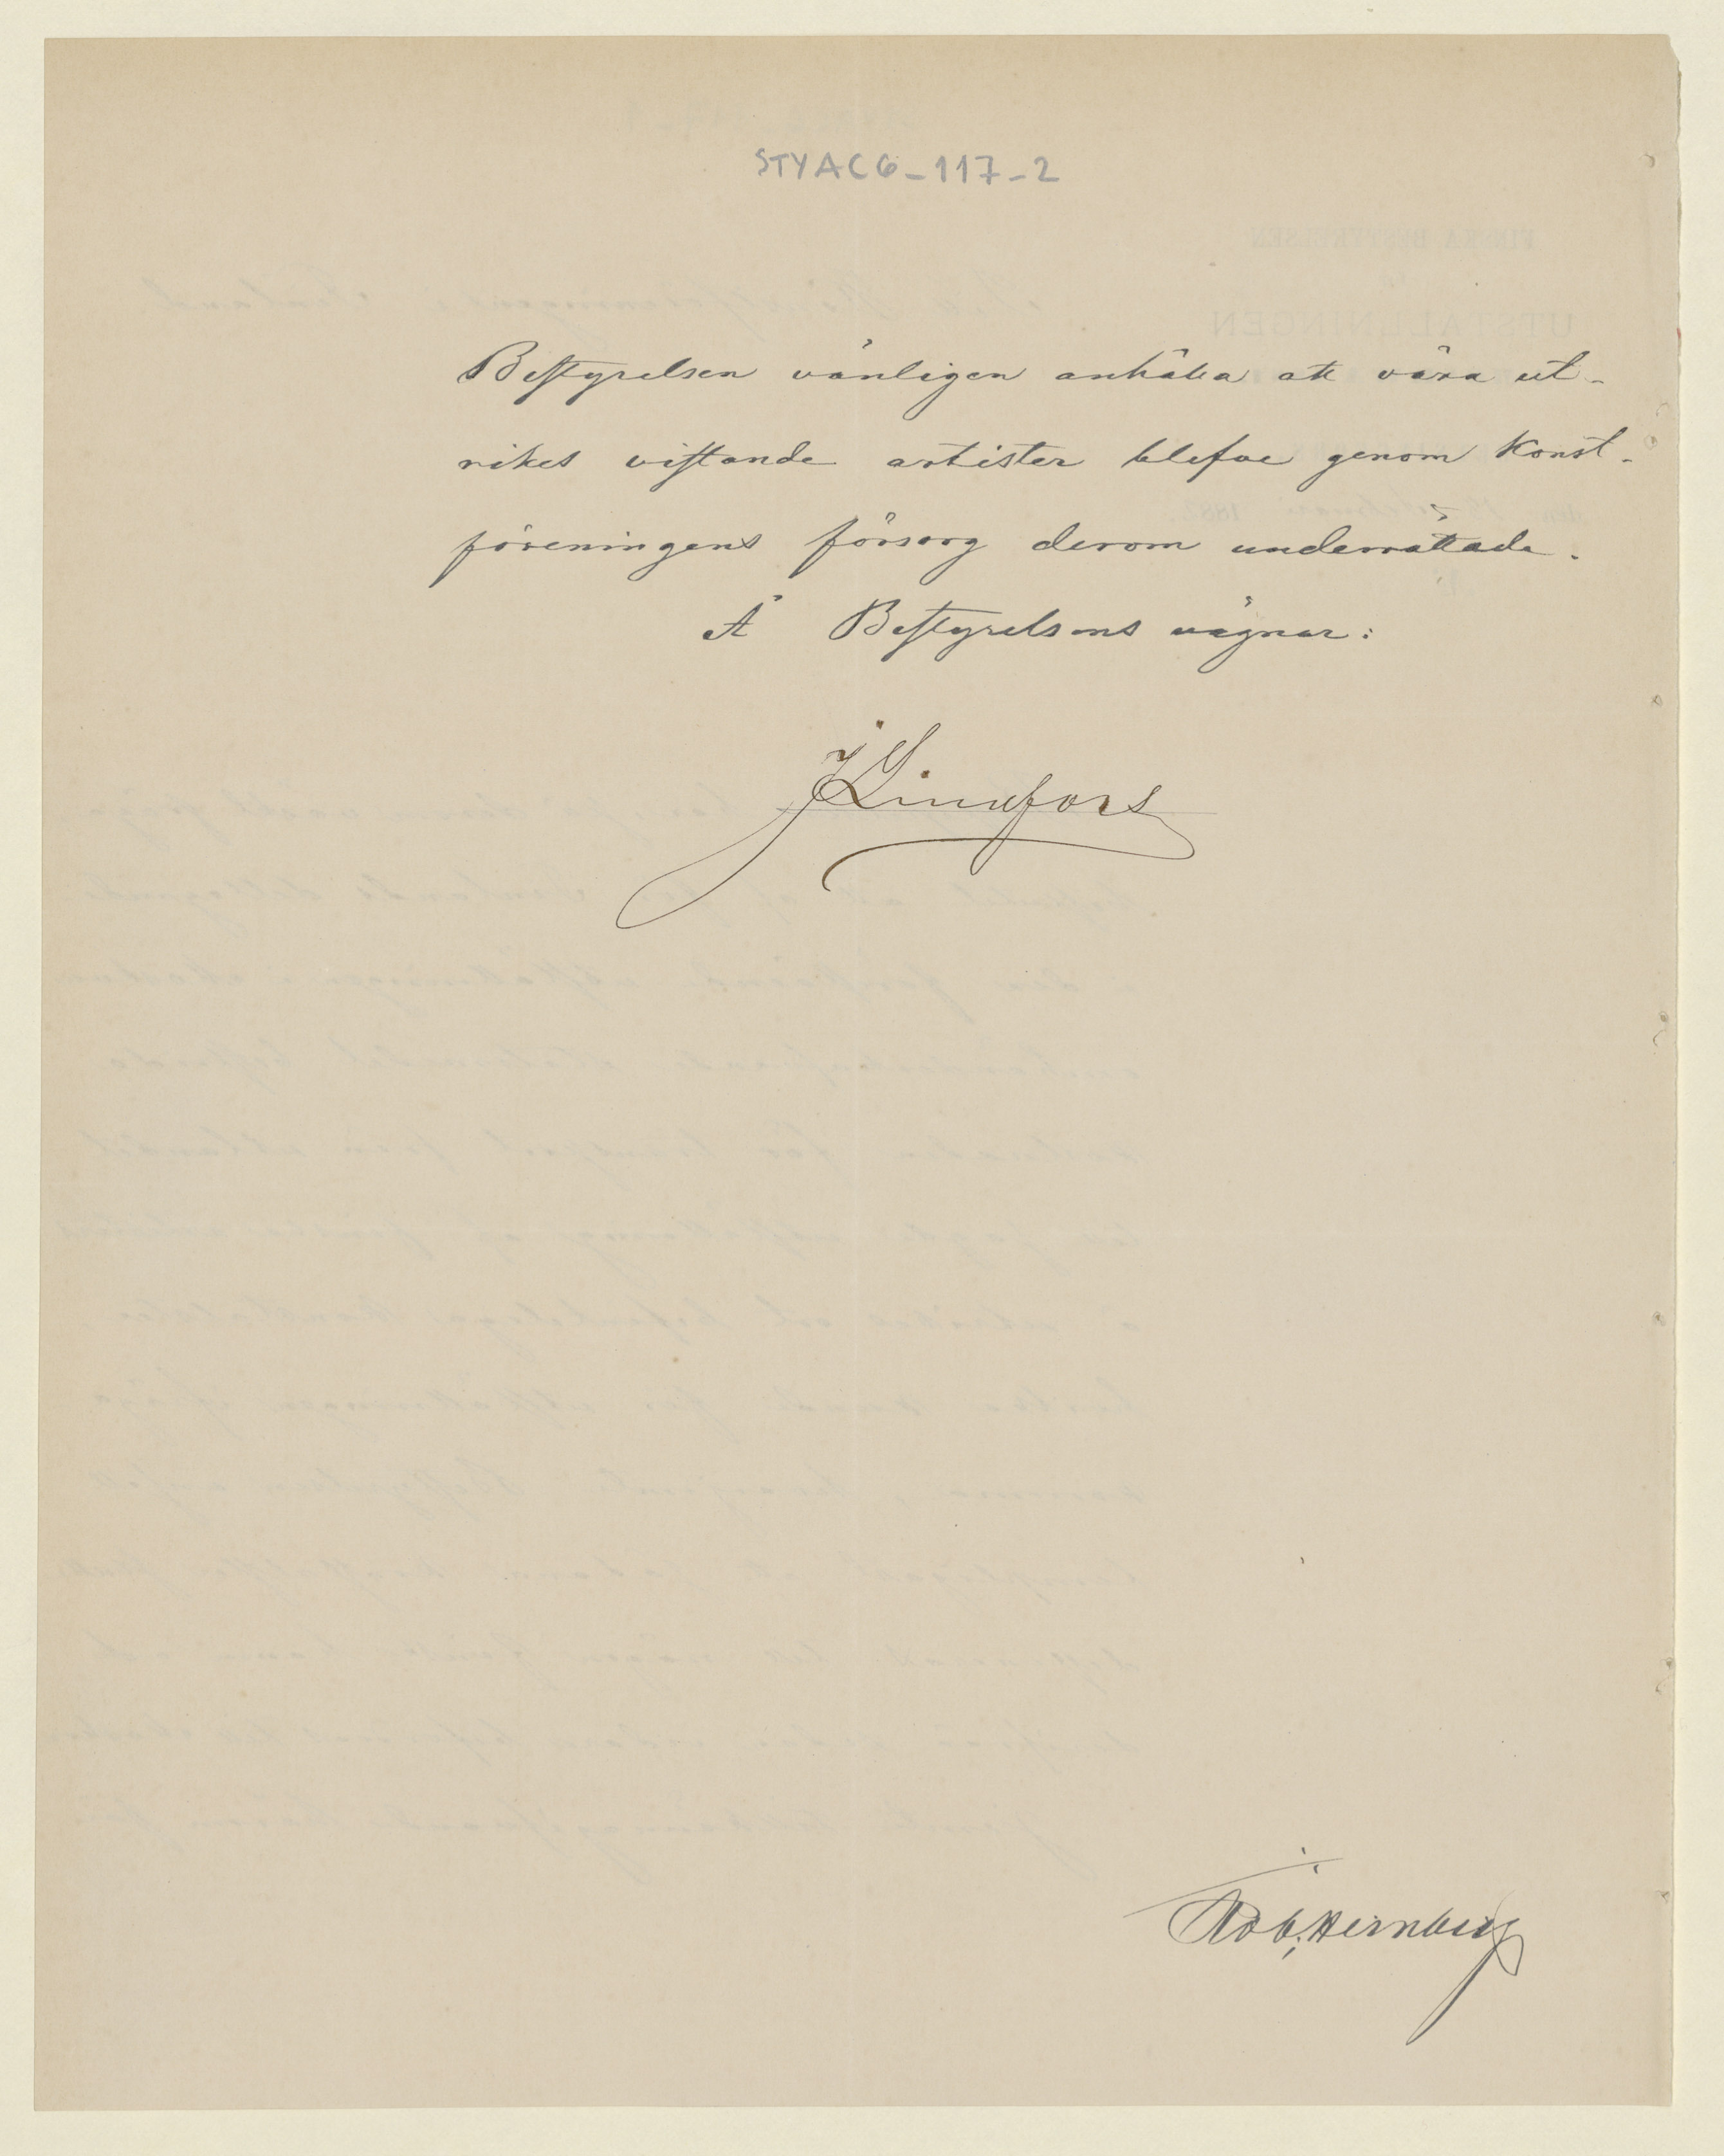 STYAC6-117-2
Bestyrelsen vänligen anhålla att våra ut-
rikes vistande artister blefve genom Konst-
föreningens försorg derom underrättade.
Å Bestyrelsens vägnar:
J Lindfors
Rob. Hernberg